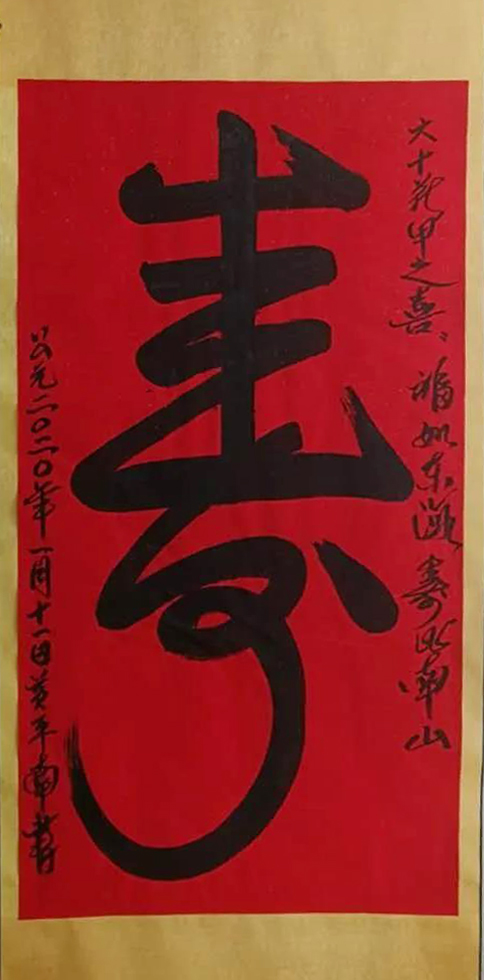 六十花甲之喜、福如东海寿比南山
寿
公元二〇二〇年一月十一日黄平南书